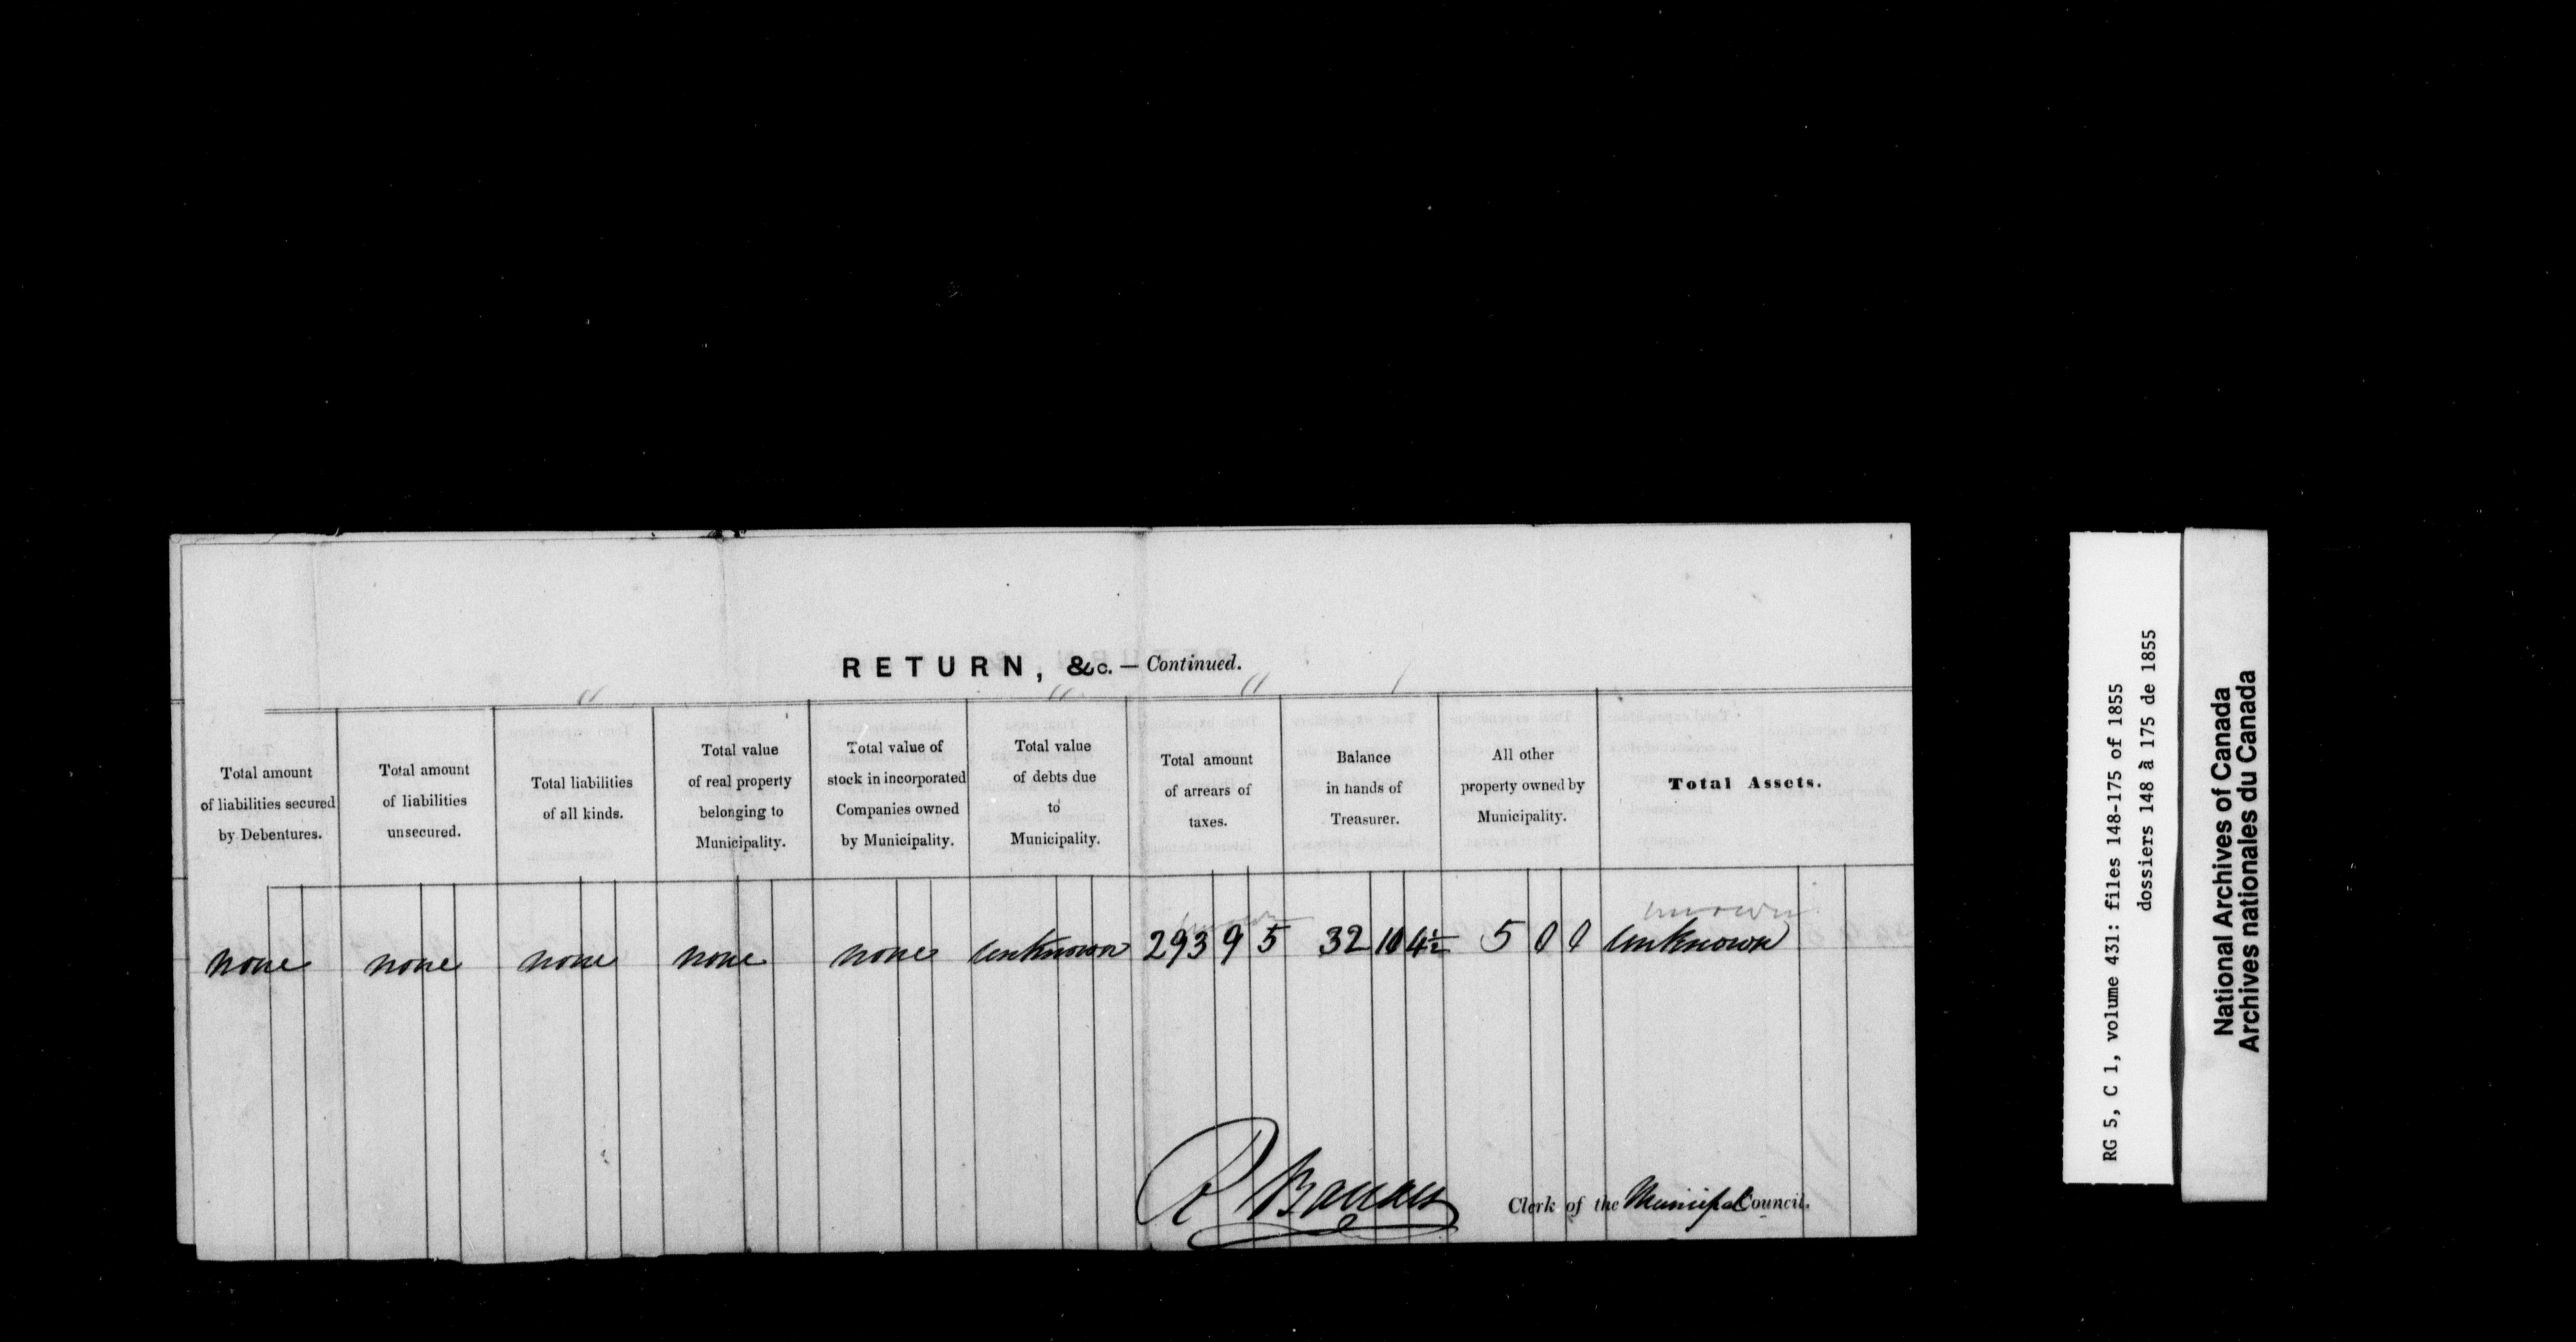 RETURN, &c. — Continued.
Total amount
of liabilities secured
by Debentures.
Total amount
of liabilities
unsecured.
Total liabilities
of all kinds.
Total value
of real property
belonging to
Municipality.
Total value of
stock in incorporated
Companies owned
by Municipality.
Total value
of debts due
to
Municipality.
Total amount
of arrears of
taxes.
Balance
in hands of
Treasurer.
All other
property owned by
Municipality.
Total Assets.
none none none none none unknown 293 9 5 32 10 4½ 5 0 0 unknown
Clerk of the Municipal Council.
RG 5, C 1, volume 431: files 148-175 of 1855
dossiers 148 à 175 de 1855
National Archives of Canada
Archives nationales du Canada